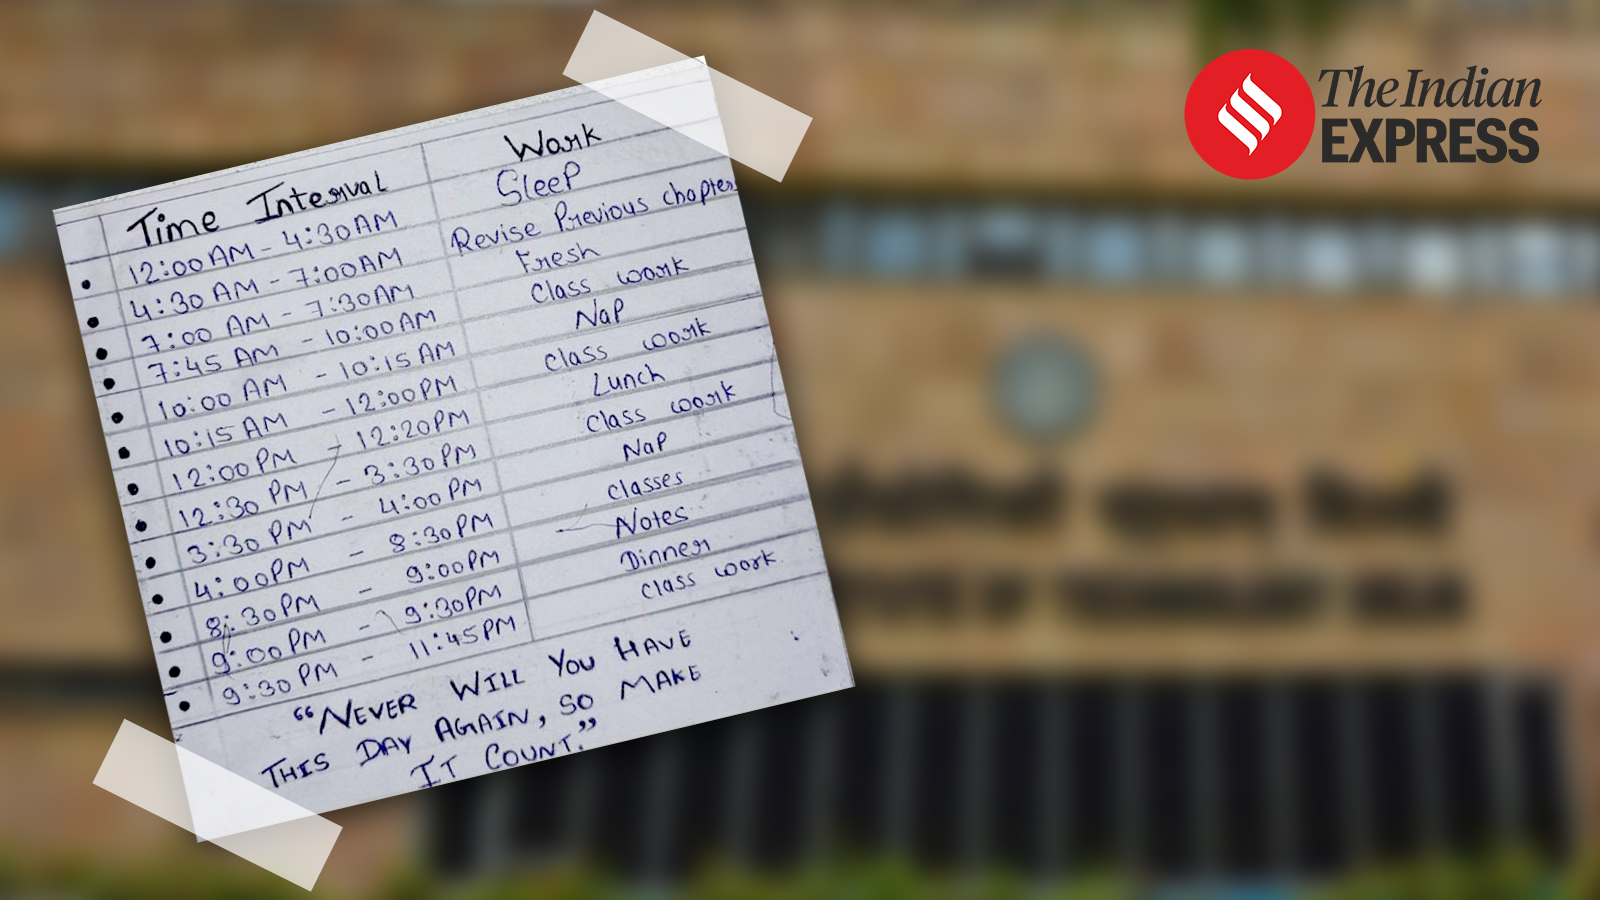 The Indian
EXPRESS
Time Interval Work
12:00 AM - 4:30 AM Sleep
4:30 AM - 7:00 AM Revise Previous chapters
7:00 AM - 7:30 AM Fresh
7:45 AM - 10:00 AM Class work
10:00 AM - 10:15 AM Nap
10:15 AM - 12:00 PM class work
12:00 PM - 12:20 PM Lunch
12:30 PM - 3:30 PM class work
3:30 PM - 4:00 PM Nap
4:00 PM - 8:30 PM classes
8:30 PM - 9:00 PM Notes
9:00 PM - 9:30 PM Dinner
9:30 PM - 11:45 PM class work
"NEVER WILL YOU HAVE
THIS DAY AGAIN, SO MAKE
IT COUNT."